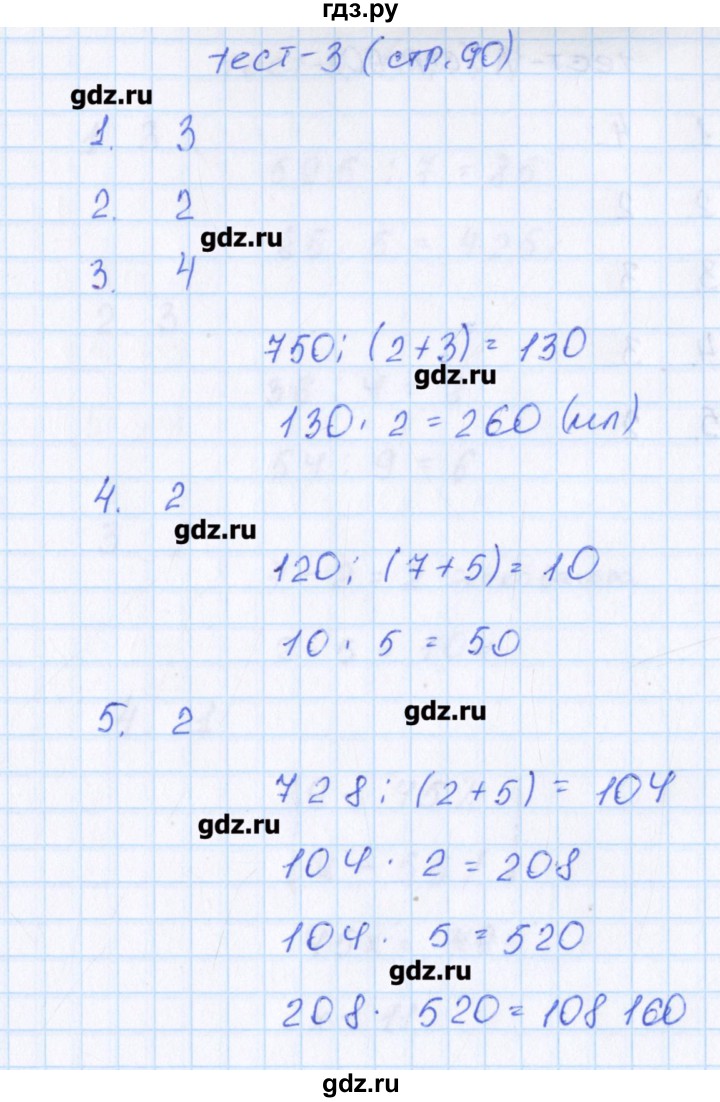 гдз.ру
тест-3 (стр.90)
gdz.ru
1. 3
2. 2
gdz.ru
3. 4
750 : (2+3) = 130
gdz.ru
130 · 2 = 260 (мл)
4. 2
gdz.ru
120 : (7+5) = 10
10 · 5 = 50
5. 2
gdz.ru
728 : (2+5) = 104
gdz.ru
104 · 2 = 208
104 · 5 = 520
gdz.ru
208 · 520 = 108 160
gdz.ru